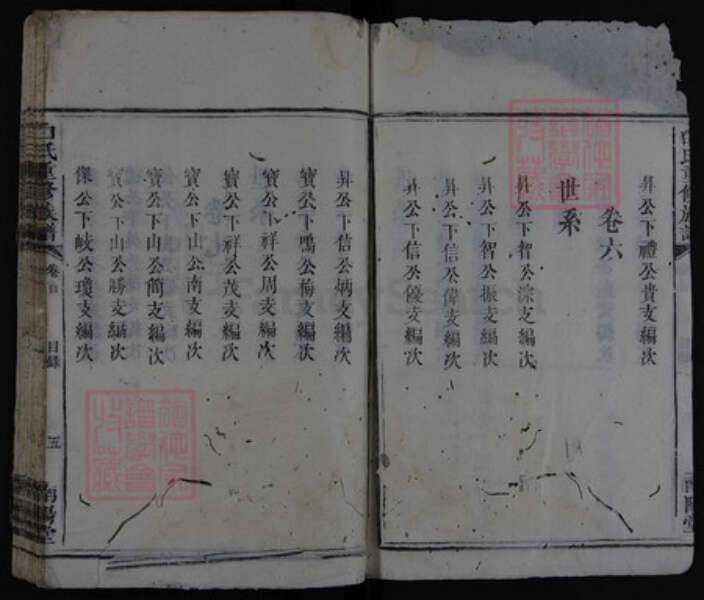 昇公下禮公貴支編次
卷六
世系
昇公下智公淙支編次
昇公下智公振支編次
昇公下信公偉支編次
昇公下信公優支編次
昇公下信公炳支編次
寶公下鳴公梅支編次
寶公下祥公周支編次
寶公下祥公茂支編次
寶公下山公南支編次
寶公下山公簡支編次
寶公下山公勝支編次
保公下岐公瓊支編次
氏重修族譜
卷首
目錄
五
南陽堂